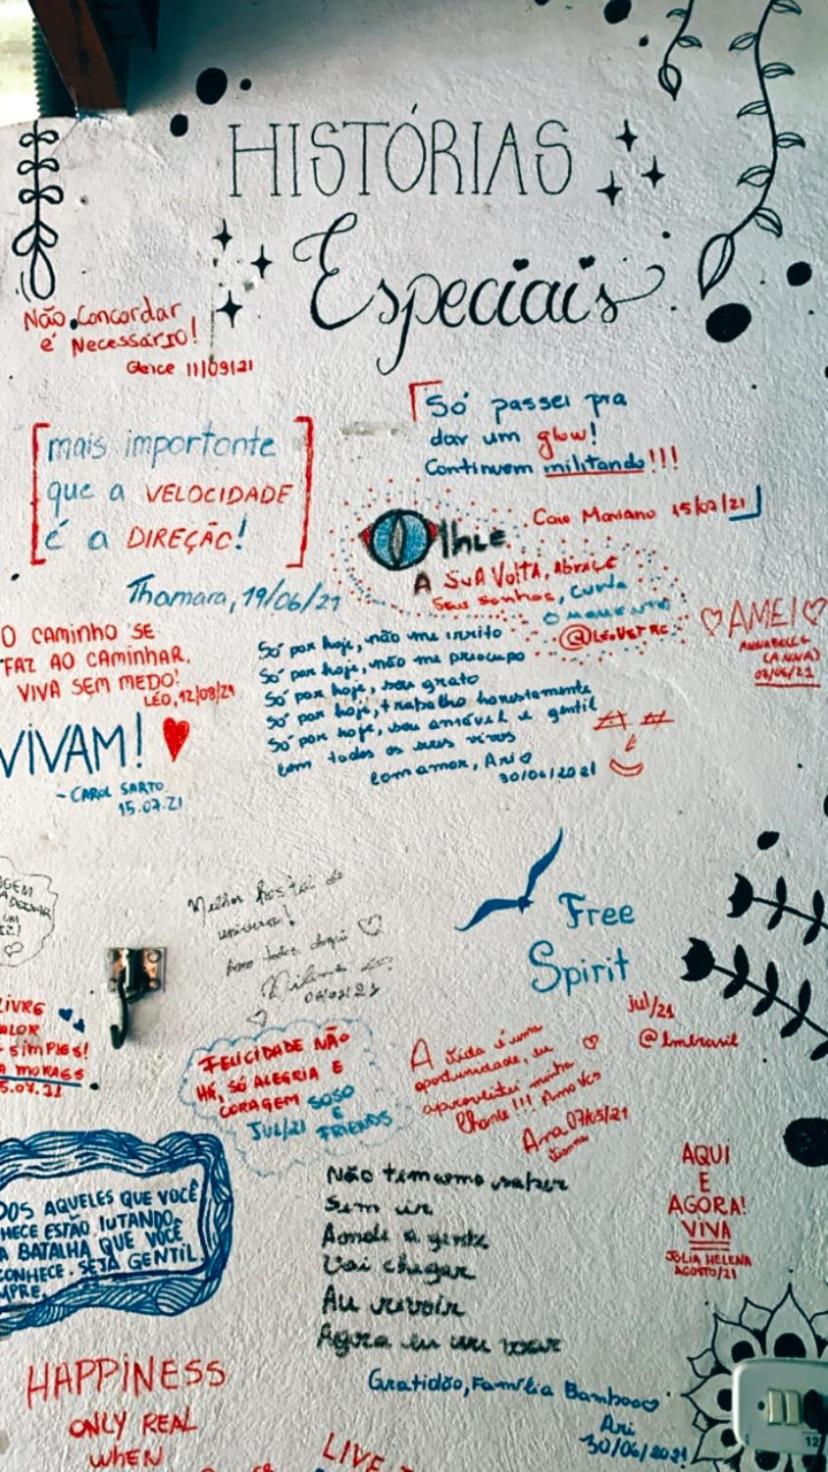 HISTÓRIAS
Especiais
Não Concordar
é Necessário!
Gleice 11/09/21
Só passei pra
dar um glow!
Continuem militando!!!
Caio Mariano 15/07/21
mais importante
que a VELOCIDADE
é a DIREÇÃO!
Thamara, 19/06/21
Olhe
A SUA VOLTA, Abrace
Seus sonhos, curta
O MOMENTO
AMEI
ANNABELLE
(ANNA)
O CAMINHO SE
FAZ AO CAMINHAR.
VIVA SEM MEDO!
LÉO, 12/08/21
Só por hoje, não me irrito
Só por hoje, não me preocupo
Só por hoje, sou grato
Só por hoje, trabalho honestamente
Só por hoje, sou amável e gentil
com todos os seres vivos
com amor, Ari
30/06/2021
VIVAM!
- CAROL SARTO
15.07.21
Melhor hostel do
universo!
Amo todos daqui
Free
Spirit
jul/21
@lmbrasil
LIVRE
SIMPLES!
FELICIDADE NÃO
HÁ, SÓ ALEGRIA E
CORAGEM SOSO
E
JUL/21 FRIENDS
A vida é uma
oportunidade, eu
aproveitei minha
chance!!! Amo vcs
Ana 07/05/21
Não tem como saber
Sem ir
Aonde a gente
Vai chegar
Au revoir
Agora eu vou
Gratidão, Família Bamboo
Ari
30/06/2021
AQUI
E
AGORA!
VIVA
JÚLIA HELENA
AGOSTO/21
DOS AQUELES QUE VOCÊ
HECE ESTÃO LUTANDO
A BATALHA QUE VOCÊ
CONHECE. SEJA GENTIL
MPRE.
HAPPINESS
ONLY REAL
WHEN
LIVE